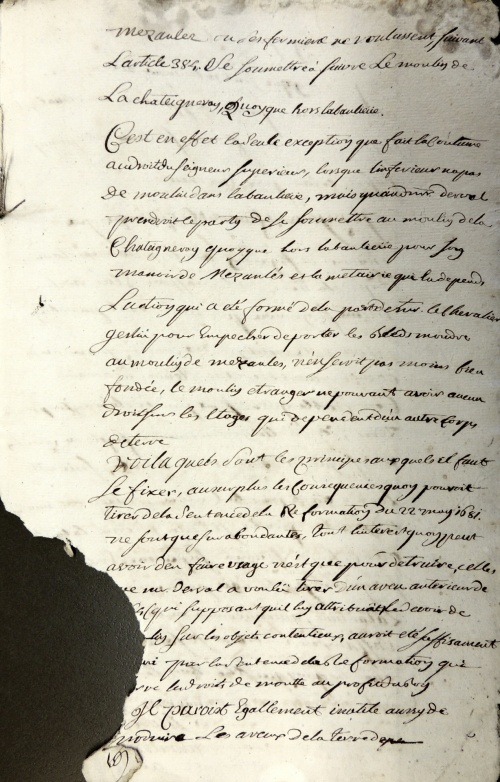 mezaulez ou desfermiers ne voulussent, suivant
L'article 384. Se soumettre à suivre Le moulin de
La chateigneray, Quoyque hors labanlieüe.
C'est en effet la seule exception que fait la Coutume
audroit du Seigneur superieur, lorsque linferieur na pas
De moulin dans labanlieüe, mais quand mr derval
prendroit le party de se soumettre au moulin dela
Chataigneray quoyque hors labanlieüe pour son
manoir de Mezaulés et la metairie que en depend
L'action qui a eté formé de la part de mr le Chevalier
geslin pour Empecher de porter les bleds moudre
au moulin de mezaules, n'en seroit pas moins bien
fondée, le moulin etranger ne pouvant avoir aucun
droit sur les Etages qui dependent d'un autre Corps
de terre
Voila quels sont les principes auxquels il faut
Se fixer, au surplus les Consequences quon pouroit
tirer de la Sentence de la Reformation du 22 may 1681.
ne sont que surabondantes. tout linterest quon peut
avoir d'en faire usage n'est que pour detruire, celles
que mr Derval a voulu tirer d'un aveu anterieur de
qui supposant quil luy attribuast devoir de
sur les objets contentieux, auroit eté suffisament
par la Sentence de la Reformation qui
le droit de moutte au profit du Roy
Il paroist Egallement inutile aussy de
produire Les aveux de la terre de